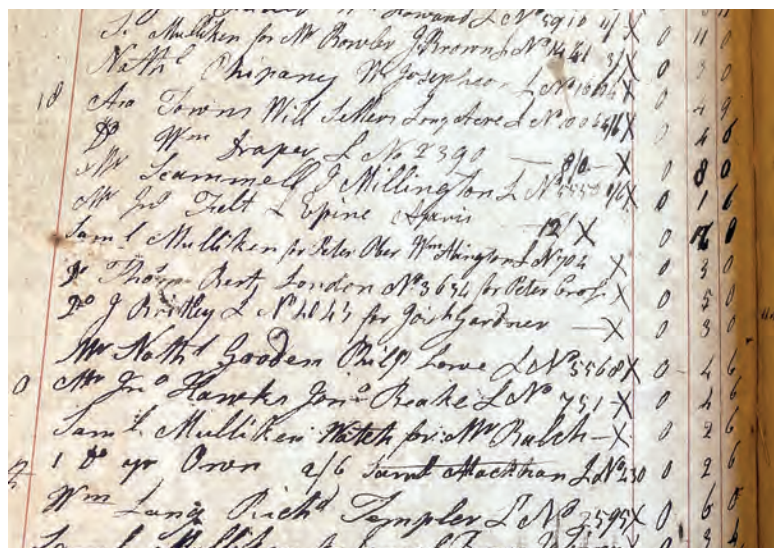 Howard L No 5910 11/ X 0 11 0
S. Mulliken for Mr Bowler J Brown L No 1441 3/ X 0 3 0
Nathl Chipancy Wm Josephson L No X 0 4 9
18 Asa Towns Will Sellers Long Acre L No 4/6 X 0 4 6
Do Wm Draper L No 2390 — 8/0 — X 0 8 0
Mr Scammell J Millington L No 5550 1/6 X 0 1 6
Mr Jno Felt L Epine 12/ X 0 12 0
Saml Mulliken for Peter Ober Wm Abington L No 704 X 0 3 0
Do Thorn Bert London No 3654 for Peter X 0 5 0
Do J Brittley L No for Josh Gardner — X 0 3 0
Mr Nathl Gooden Philp Lowe L No 5568 X 0 4 6
0 Mr Jno Hawks Jona Beake L No 751 — X 0 4 6
Saml Mulliken Watch for Mr Balch — X 0 2 6
1 Do yr Own 2/6 Saml L No 230 0 2 6
Wm Lang Richd Templer L No 3595 X 0 6 0
Saml Mulliken for 0 3